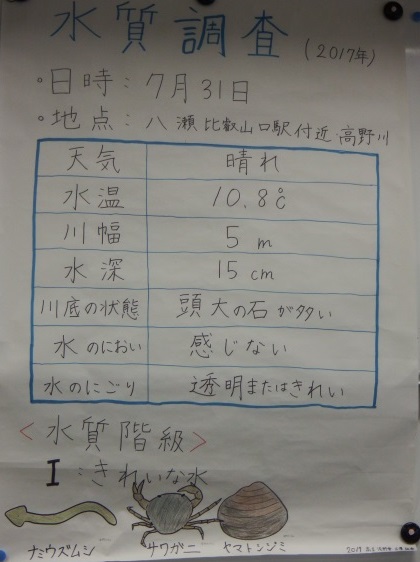 水質調査 (2017年)
・日時：7月31日
・地点：八瀬比叡山口駅付近 高野川
天気 晴れ
水温 10.8℃
川幅 5 m
水深 15 cm
川底の状態 頭大の石が多い
水のにおい 感じない
水のにごり 透明またはきれい
<水質階級>
I：きれいな水
ナミウズムシ サワガニ ヤマトシジミ
2017